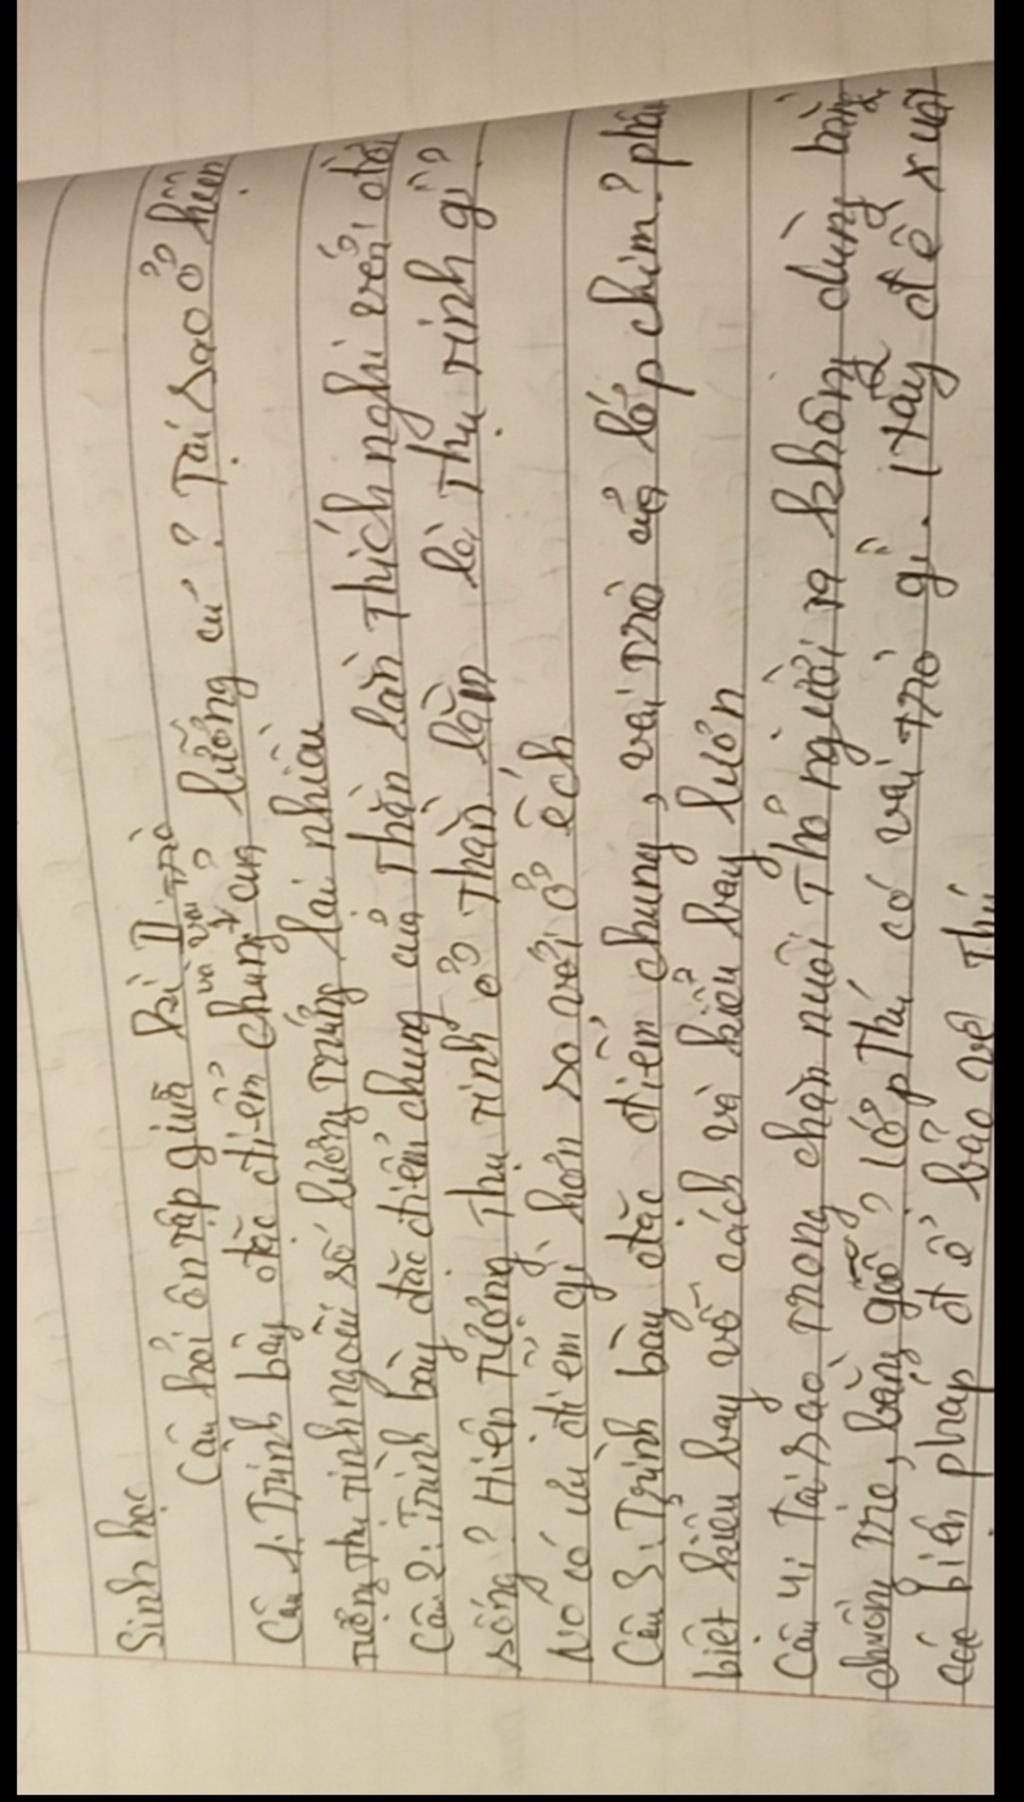 Sinh học
Câu hỏi ôn tập giữa kì II
và vai trò
Câu 1: Trình bày đặc điểm chung của lưỡng cư? Tại sao ở hiện
tượng thụ tinh ngoài số lượng trứng lại nhiều
Câu 2: Trình bày đặc điểm chung của Thằn lằn Thích nghi với đời
sống? Hiện tượng Thụ tinh ở Thằn lằn là Thụ tinh gì?
Nó có ưu điểm gì hơn so với ở ếch
Câu 3: Trình bày đặc điểm chung, vai trò của lớp chim? phân
biệt kiểu bay vỗ cách và kiểu bay lượn
Câu 4: Tại sao trong chăn nuôi Thỏ người ta không dùng bằng
chuồng tre, bằng gỗ? lớp Thú có vai trò gì. Hãy đề xuất
các biện pháp để bảo vệ Thú